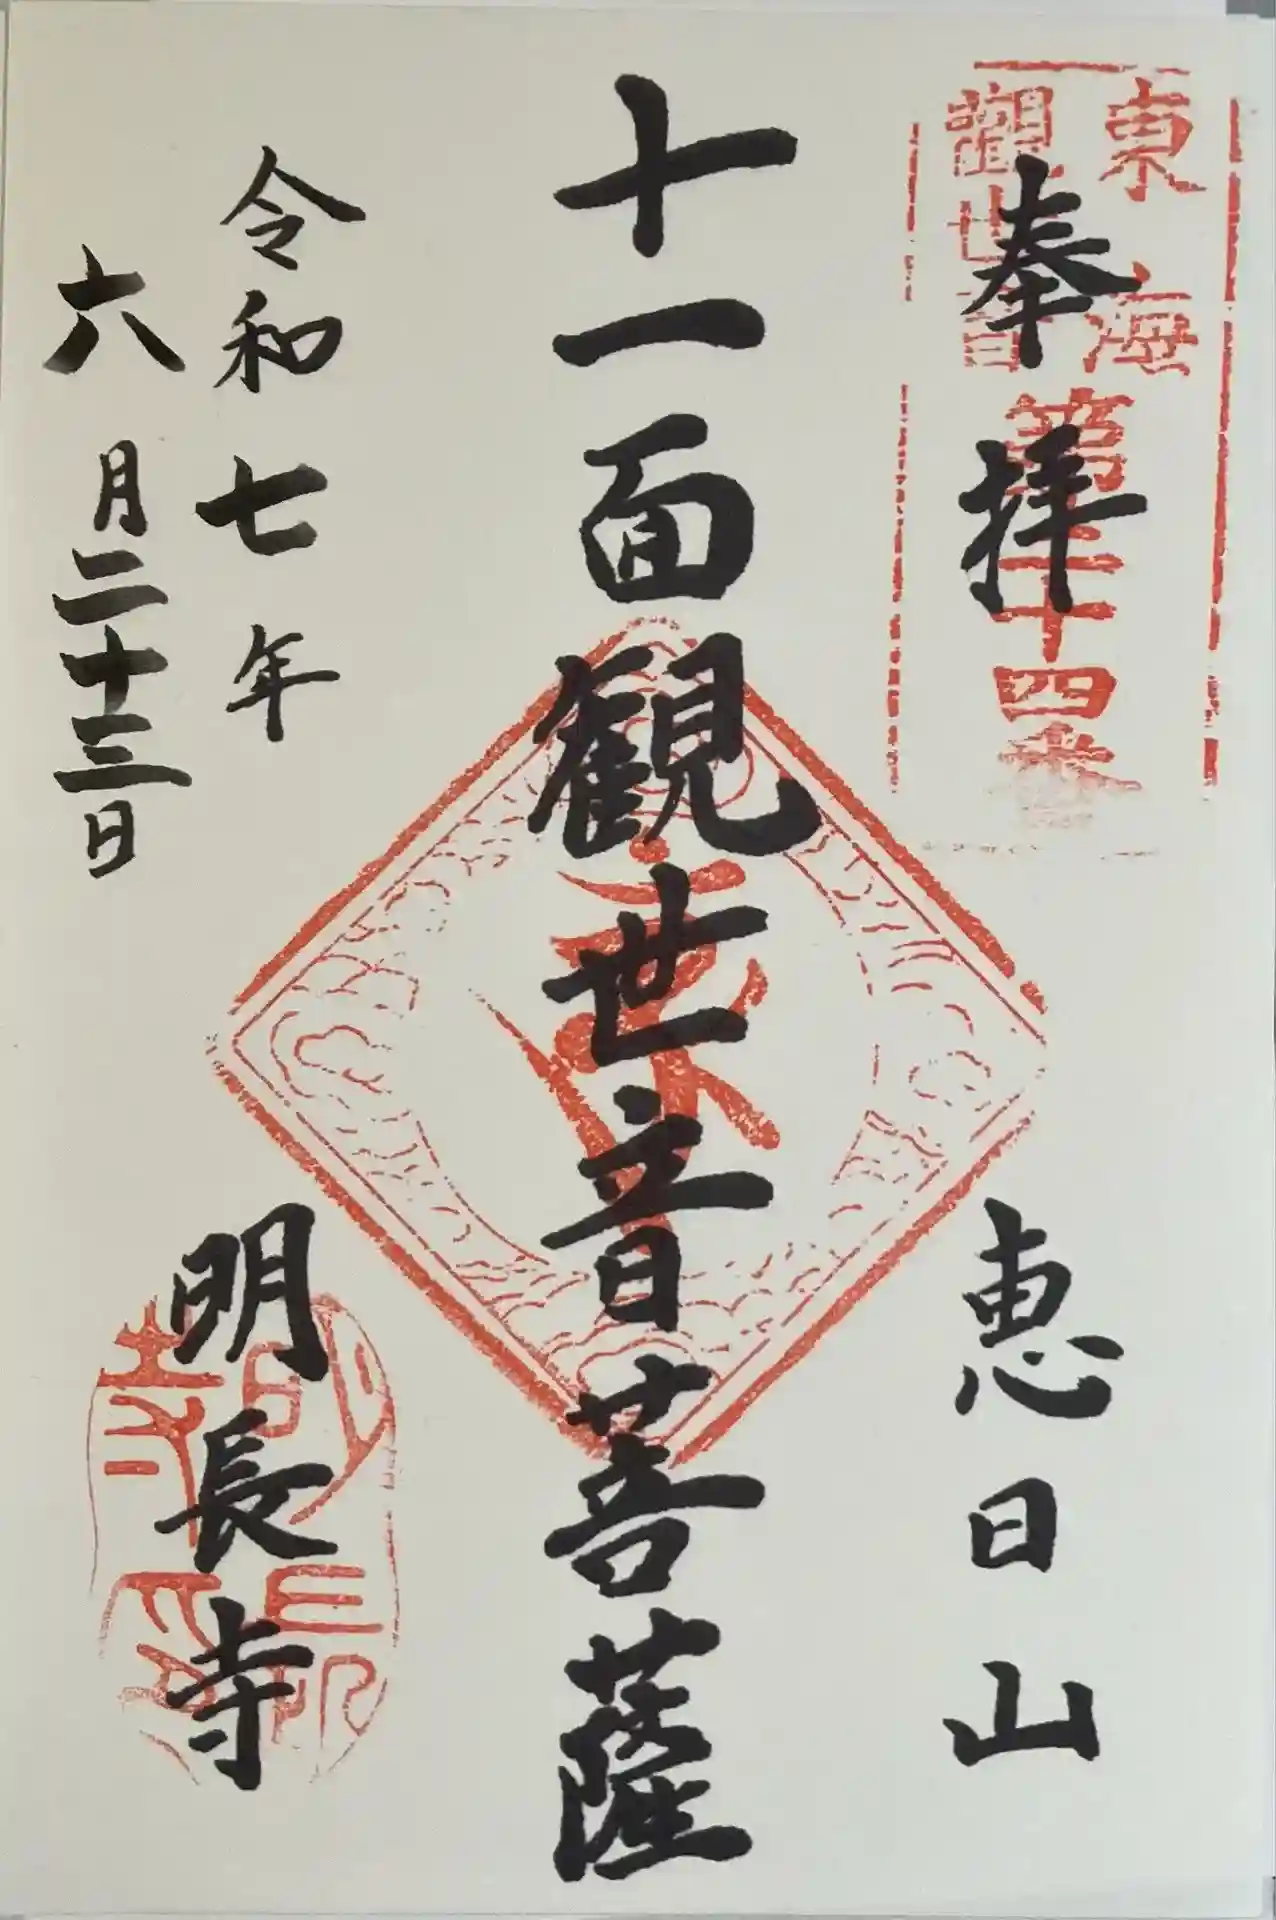 奉拝
恵日山
東海
觀世音
第二十四番
十一面観世音菩薩
令和七年
六月二十三日
明長寺